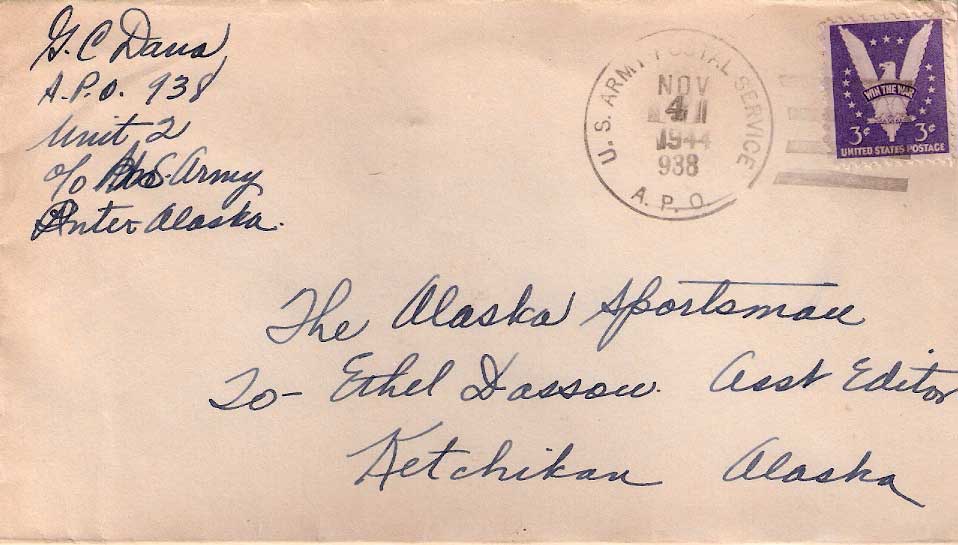 G. C Dana
A.P.O. 938
Unit 2
c/o U.S. Army
Inter Alaska.
U. S. ARMY POSTAL SERVICE
NOV
4
1944
938
A. P. O.
WIN THE WAR
3¢ 3¢
UNITED STATES POSTAGE
The Alaska Sportsman
To- Ethel Dassow. Asst Editor
Ketchikan Alaska